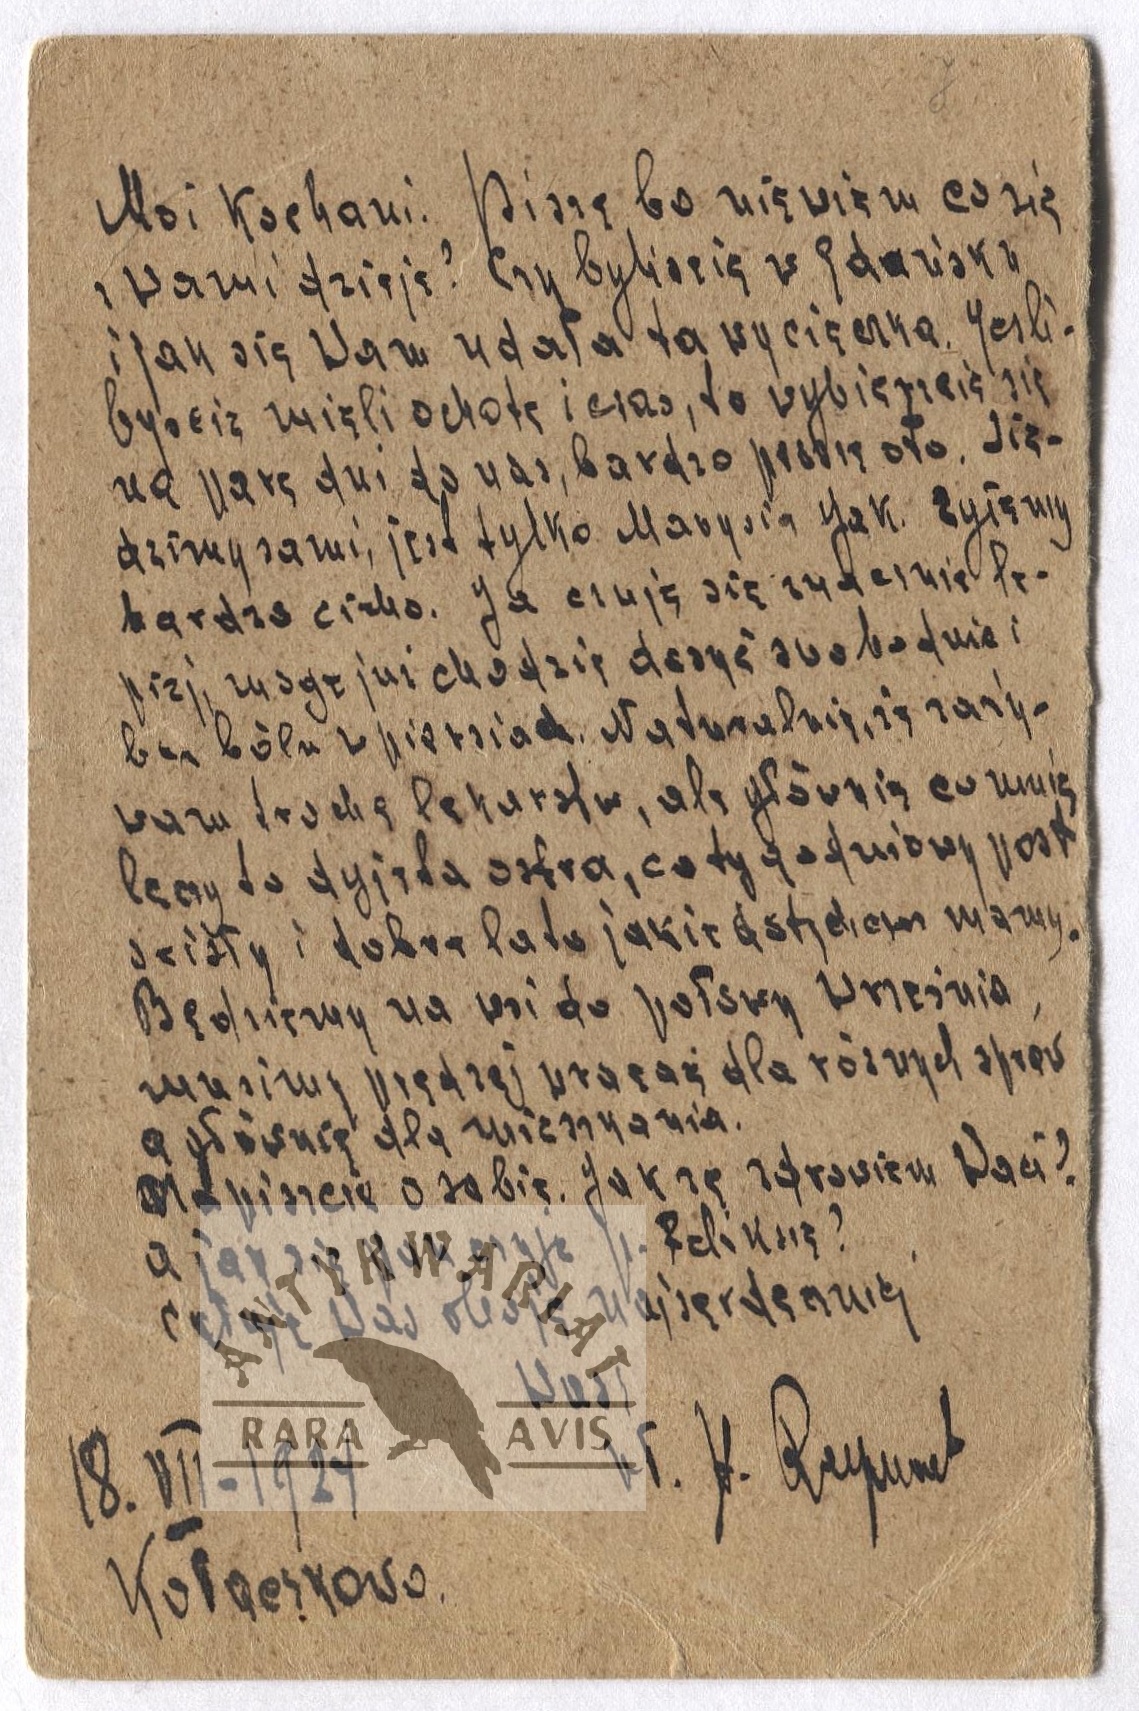 Moi Kochani. Piszę bo niewiem co się
z Wami dzieje? Czy byliście w Gdańsku
i jak się Wam udała ta wycieczka. Jesli-
byscie mieli ochotę i czas, to wybierzcie się
na parę dni do nas, bardzo proszę oto. Sie-
dzimy sami, jest tylko Marysia Jak. Żyjemy
bardzo cicho. Ja czuję się znacznie le-
piej, mogę już chodzić dosyć swobodnie i
bez bólu w piersiach. Naturalnie, że zaży-
wam trochę lekarstw, ale głównie co mnie
leczy to dyjeta ostra, cotygodniowy post
scisły i dobre lato jakie dotychczas mamy.
Będziemy na wsi do połowy Września,
musimy prędzej wracać dla różnych spraw
a głównie dla mieszkania.
Napiszcie o sobie. Jak ze zdrowiem Waci?
a jak się p. Feliksie?
Całuję Was oboje najserdeczniej
Wasz
Wł. St. Reymont
18. VII-1924
Kołaczkowo.
ANTYKWARIAT
RARA AVIS